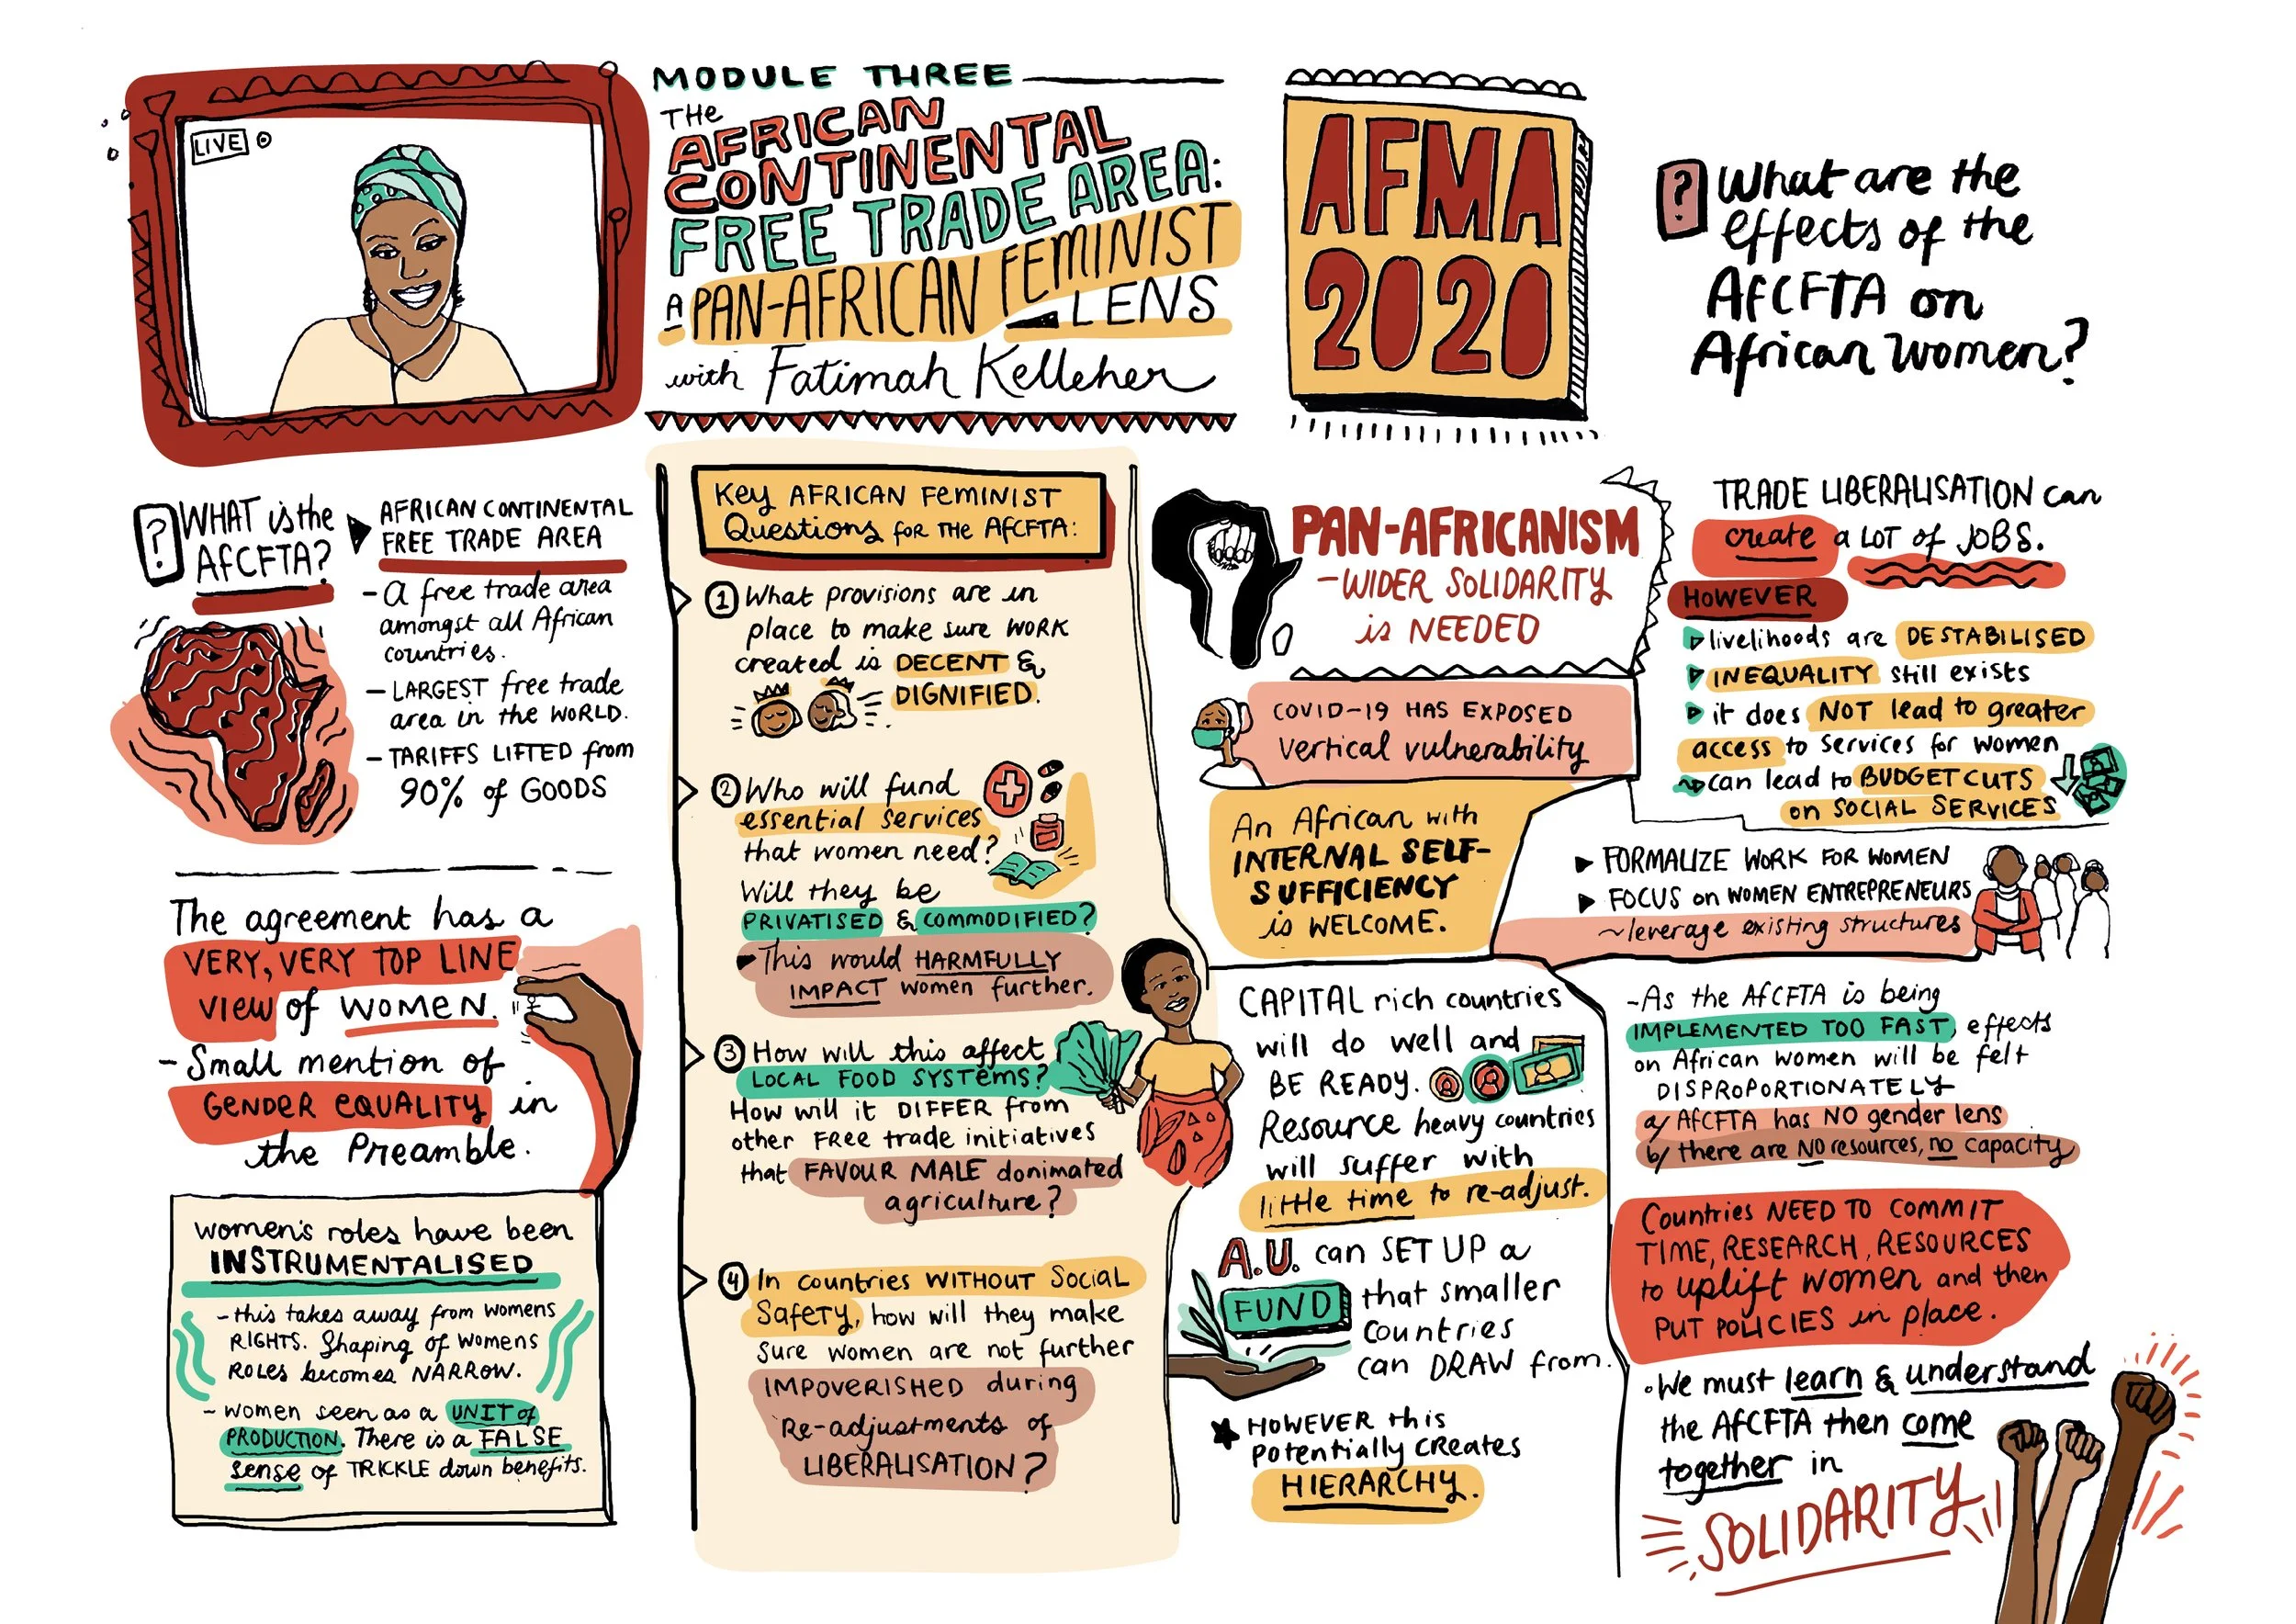 LIVE
MODULE THREE
THE
AFRICAN
CONTINENTAL
FREE TRADE AREA:
A PAN-AFRICAN FEMINIST
LENS
with Fatimah Kelleher
AFMA
2020
? What are the
effects of the
AfCFTA on
African women?
? WHAT is the
AfCFTA?
AFRICAN CONTINENTAL
FREE TRADE AREA
- A free trade area
amongst all African
countries.
- LARGEST free trade
area in the WORLD.
- TARIFFS LIFTED from
90% of GOODS
The agreement has a
VERY, VERY TOP LINE
VIEW of WOMEN.
- Small mention of
GENDER EQUALITY in
the Preamble.
women's roles have been
INSTRUMENTALISED
- this takes away from womens
RIGHTS. Shaping of womens
ROLES becomes NARROW.
- women seen as a UNIT of
PRODUCTION. There is a FALSE
sense of TRICKLE down benefits.
Key AFRICAN FEMINIST
Questions for THE AfCFTA:
1 What provisions are in
place to make sure WORK
created is DECENT &
DIGNIFIED.
2 Who will fund
essential services
that women need?
Will they be
PRIVATISED & COMMODIFIED?
This would HARMFULLY
IMPACT women further.
3 How will this affect
LOCAL FOOD SYSTEMS?
How will it DIFFER from
other FREE trade initiatives
that FAVOUR MALE donimated
agriculture?
4 In countries WITHOUT Social
SAFETY, how will they make
sure women are not further
IMPOVERISHED during
Re-adjustments of
LIBERALISATION?
PAN-AFRICANISM
- WIDER SOLIDARITY
is NEEDED
COVID-19 HAS EXPOSED
Vertical vulnerability
An African with
INTERNAL SELF-
SUFFICIENCY
is WELCOME.
CAPITAL rich countries
will do well and
BE READY.
Resource heavy countries
will suffer with
little time to re-adjust.
A.U. can SET UP a
FUND that smaller
countries
can DRAW from.
HOWEVER this
potentially CREATES
HIERARCHY.
TRADE LIBERALISATION can
create a LOT of JOBS.
HOWEVER
livelihoods are DESTABILISED
INEQUALITY still exists
it does NOT lead to greater
access to services for women
can lead to BUDGET CUTS
on SOCIAL SERVICES
FORMALIZE WORK FOR WOMEN
FOCUS on WOMEN ENTREPRENEURS
~leverage existing structures
- As the AfCFTA is being
IMPLEMENTED TOO FAST, effects
on African women will be felt
DISPROPORTIONATELY
a/ AfCFTA has NO gender lens
b/ there are NO resources, no capacity
Countries NEED TO COMMIT
TIME, RESEARCH, RESOURCES
to uplift women and then
PUT POLICIES in place.
• We must learn & understand
the AfCFTA then come
together in
SOLIDARITY